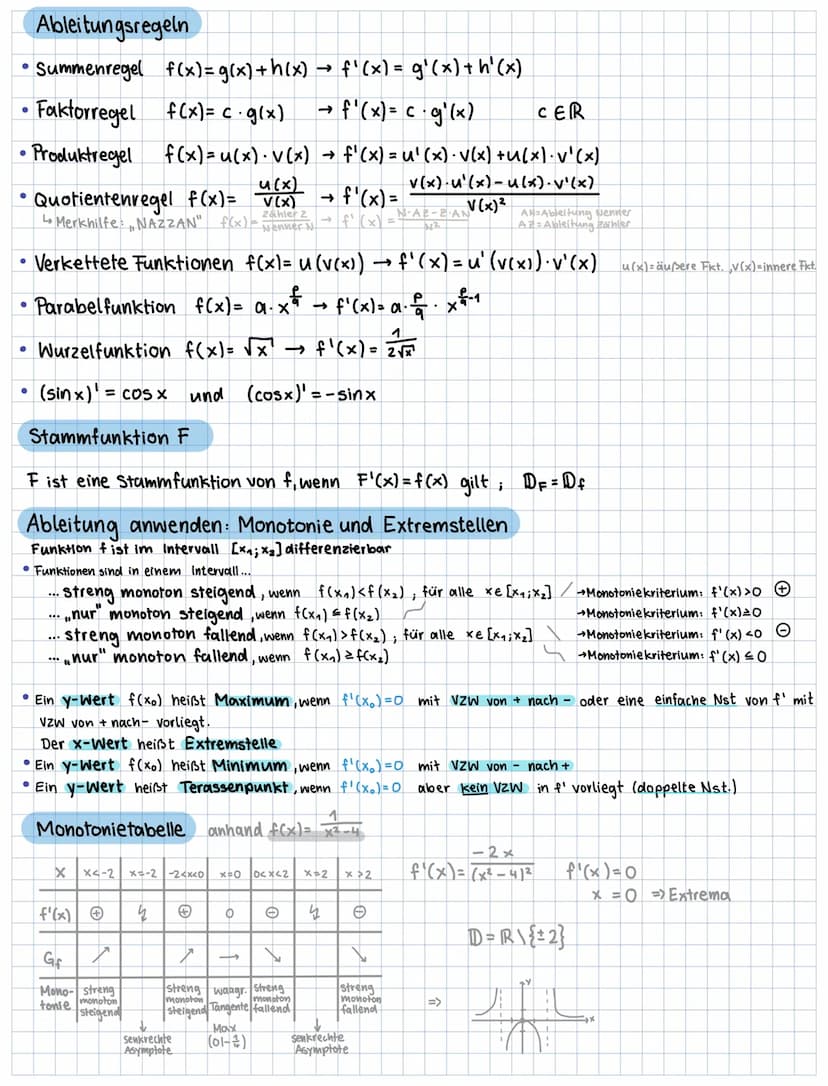 Ableitungsregeln
• Summenregel f(x)=g(x)+h(x) → f'(x)= g'(x)+h'(x)
• Faktorregel f(x)= c · g(x) → f'(x)= c · g'(x) c ∈ ℝ
• Produktregel f(x)=u(x)·v(x) → f'(x)=u'(x)·v(x)+u(x)·v'(x)
• Quotientenregel f(x)= u(x)/v(x) → f'(x)= (v(x)·u'(x)-u(x)·v'(x))/v(x)²
↳ Merkhilfe: „NAZZAN" f(x)= Zähler Z/Nenner N → f'(x)= (N·AZ-Z·AN)/N² AN=Ableitung Nenner
AZ=Ableitung Zähler
• Verkettete Funktionen f(x)= u(v(x)) → f'(x)= u'(v(x))·v'(x) u(x)=äußere Fkt. ,v(x)=innere Fkt.
• Parabelfunktion f(x)= a·x^(p/q) → f'(x)= a·p/q · x^(p/q-1)
• Wurzelfunktion f(x)= √x → f'(x)= 1/(2√x)
• (sinx)' = cosx und (cosx)' = -sinx
Stammfunktion F
F ist eine Stammfunktion von f, wenn F'(x)=f(x) gilt ; 𝔻F = 𝔻f
Ableitung anwenden: Monotonie und Extremstellen
Funktion f ist im Intervall [x₁;x₂] differenzierbar
• Funktionen sind in einem Intervall...
... streng monoton steigend, wenn f(x₁)<f(x₂) , für alle x∈[x₁;x₂] →Monotoniekriterium: f'(x)>0 ⊕
... „nur" monoton steigend, wenn f(x₁)≤f(x₂) →Monotoniekriterium: f'(x)≥0
... streng monoton fallend, wenn f(x₁)>f(x₂) ; für alle x∈[x₁;x₂] →Monotoniekriterium: f'(x)<0 ⊖
... „nur" monoton fallend, wenn f(x₁)≥f(x₂) →Monotoniekriterium: f'(x)≤0
• Ein y-Wert f(x₀) heißt Maximum, wenn f'(x₀)=0 mit VZW von + nach - oder eine einfache Nst von f' mit
VZW von + nach- vorliegt.
Der x-Wert heißt Extremstelle
• Ein y-Wert f(x₀) heißt Minimum, wenn f'(x₀)=0 mit VZW von - nach +
• Ein y-Wert heißt Terassenpunkt, wenn f'(x₀)=0 aber kein VZW in f' vorliegt (doppelte Nst.)
Monotonietabelle anhand f(x)= 1/(x²-4)
x x<-2 x=-2 -2<x<0 x=0 0<x<2 x=2 x>2
f'(x) ⊕ ↯ ⊕ 0 ⊖ ↯ ⊖
Gf ↗ ↗ → ↘ ↘
Mono- streng streng waagr. streng streng
tonie monoton monoton Tangente monoton monoton
steigend steigend Max fallend fallend
senkrechte (0|-1/4) senkrechte
Asymptote Asymptote
f'(x)= -2x/(x²-4)² f'(x)=0
x = 0 ⇒ Extrema
𝔻=ℝ\{±2}
⇒
y
x